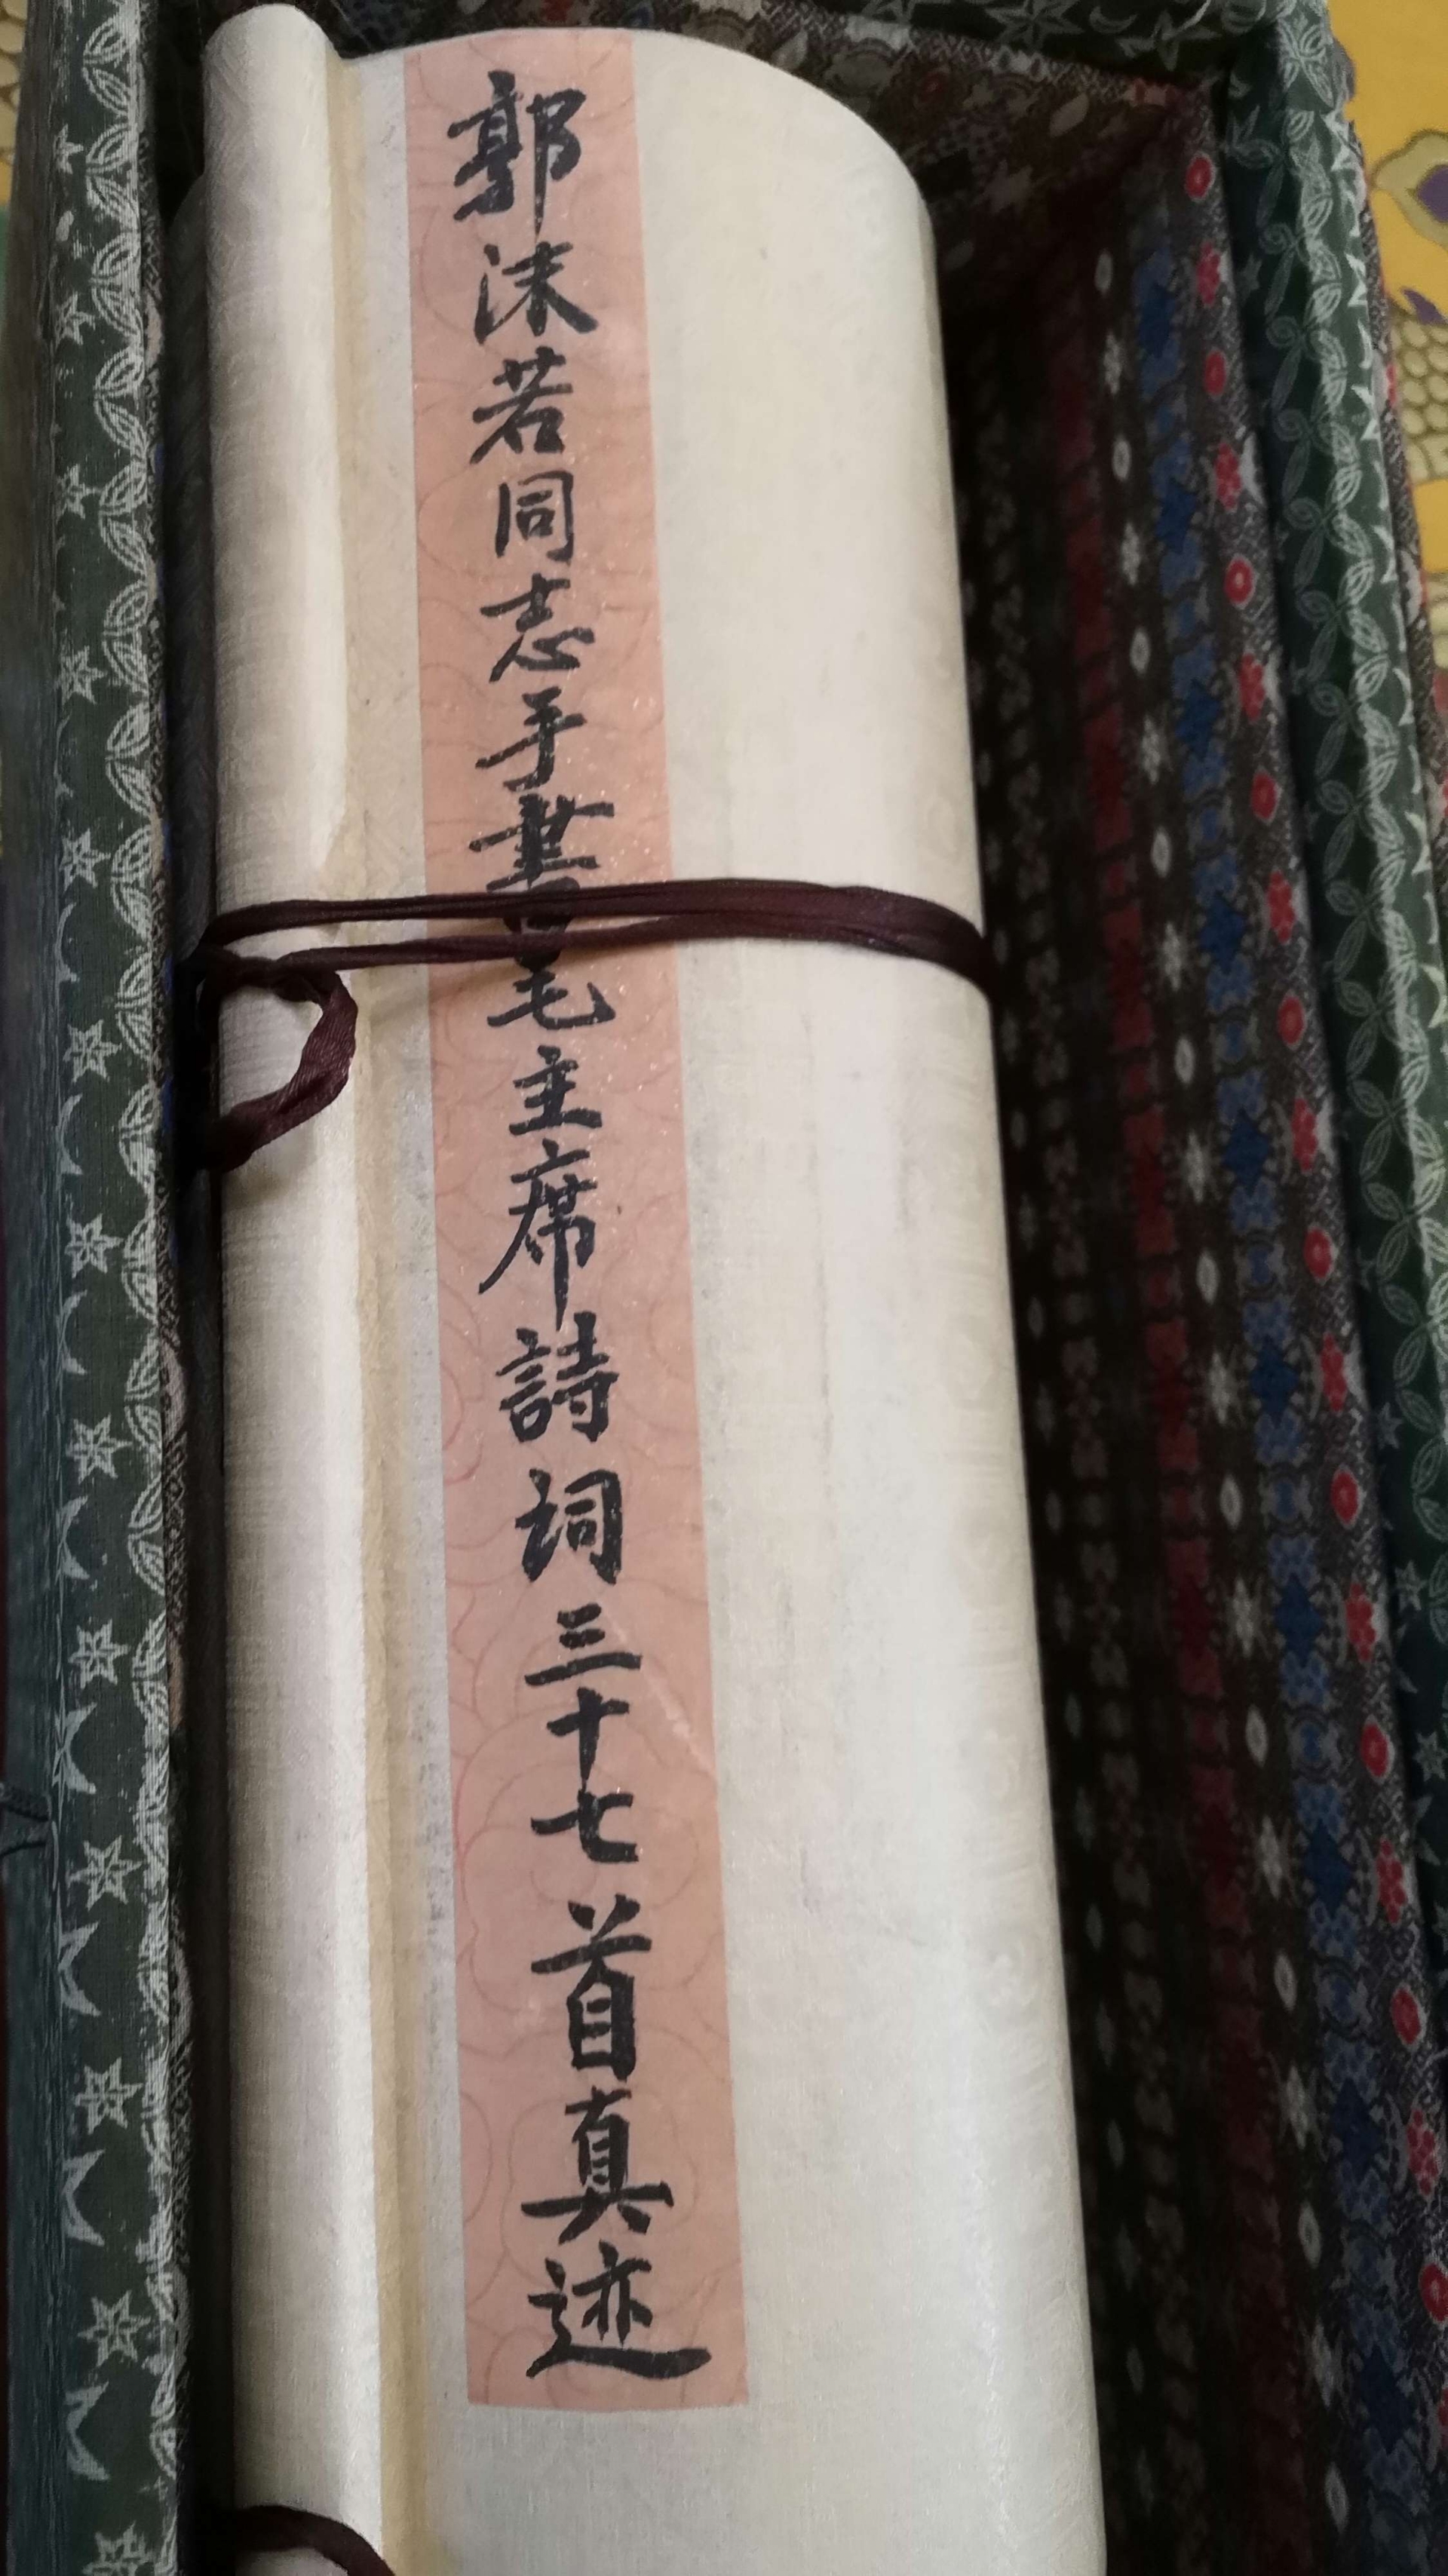 郭沫若同志手書毛主席詩词三十七首真迹